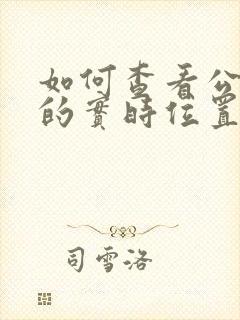 如何查看公
的實時位置
司雪洛